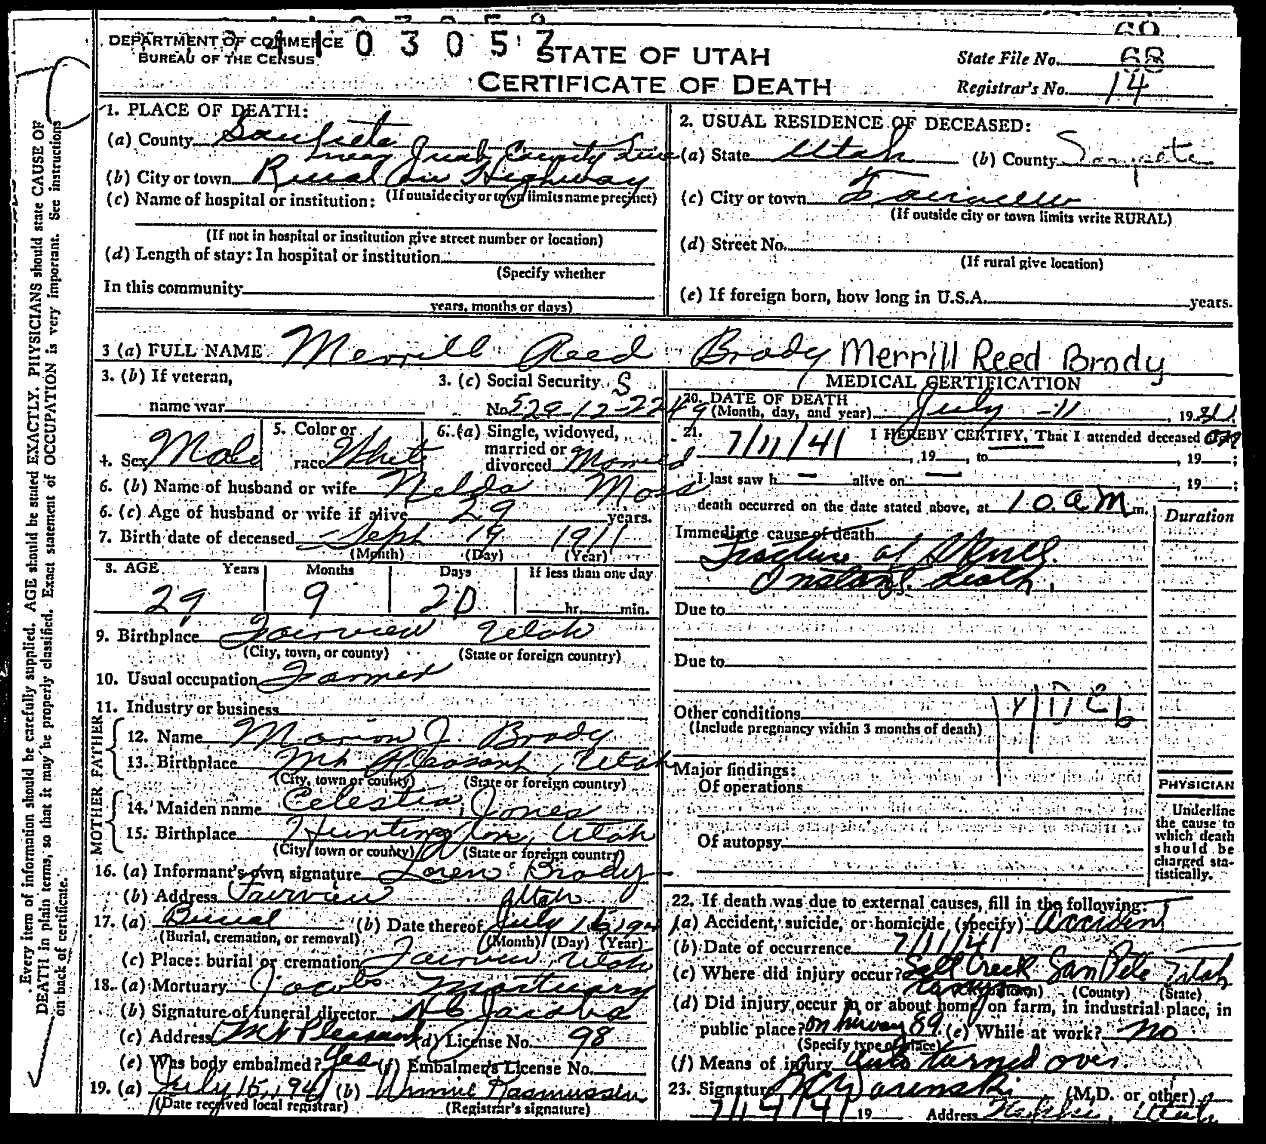 DEPARTMENT OF COMMERCE
BUREAU OF THE CENSUS
STATE OF UTAH
CERTIFICATE OF DEATH
State File No. 68
Registrar's No. 14
Every item of information should be carefully supplied. AGE should be stated EXACTLY. PHYSICIANS should state CAUSE OF
DEATH in plain terms, so that it may be properly classified. Exact statement of OCCUPATION is very important. See instructions
on back of certificate.
1. PLACE OF DEATH:
(a) County Sanpete
near Juab County Line
(b) City or town Rural on Highway
(If outside city or town limits name precinct)
(c) Name of hospital or institution:
(If not in hospital or institution give street number or location)
(d) Length of stay: In hospital or institution
(Specify whether
In this community
years, months or days)
2. USUAL RESIDENCE OF DECEASED:
(a) State Utah (b) County Sanpete
(c) City or town Fairview
(If outside city or town limits write RURAL)
(d) Street No.
(If rural give location)
(e) If foreign born, how long in U.S.A. years.
3 (a) FULL NAME Merrill Reed Brady Merrill Reed Brady
3. (b) If veteran,
name war
3. (c) Social Security
No. 529-12-2249
4. Sex Male
5. Color or
race White
6. (a) Single, widowed,
married or
divorced Married
6. (b) Name of husband or wife Nelda Moss
6. (c) Age of husband or wife if alive 29 years.
7. Birth date of deceased Sept 19 1911
(Month) (Day) (Year)
8. AGE Years Months Days If less than one day
29 9 20 hr. min.
9. Birthplace Fairview Utah
(City, town, or county) (State or foreign country)
10. Usual occupation Farmer
11. Industry or business
FATHER
12. Name Marion J. Brady
13. Birthplace Mt Pleasant, Utah
(City, town or county) (State or foreign country)
MOTHER
14. Maiden name Celestia Jones
15. Birthplace Huntington, Utah
(City, town or county) (State or foreign country)
16. (a) Informant's own signature Loren Brady
(b) Address Fairview Utah
17. (a) Burial (b) Date thereof July
(Burial, cremation, or removal) (Month) (Day) (Year)
(c) Place: burial or cremation Fairview, Utah
18. (a) Mortuary Jacobs Mortuary
(b) Signature of funeral director Jacobs
(c) Address Mt Pleasant (d) License No. 98
(e) Was body embalmed? Yes (f) Embalmer's License No.
19. (a) July 15, 1941 (b) Winnie Rasmussen
(Date received local registrar) (Registrar's signature)
MEDICAL CERTIFICATION
20. DATE OF DEATH
(Month, day, and year) July - 11, 1941
21. 7/11/41 I HEREBY CERTIFY, That I attended deceased
, 19 , to , 19 ;
I last saw h — alive on — , 19 ;
death occurred on the date stated above, at 10. a M m.
Duration
Immediate cause of death
Fracture of Skull.
Instant death.
Due to
Due to
Other conditions
(Include pregnancy within 3 months of death)
Major findings:
Of operations
Of autopsy
PHYSICIAN
Underline
the cause to
which death
should be
charged sta-
tistically.
22. If death was due to external causes, fill in the following:
(a) Accident, suicide, or homicide (specify) Accident
(b) Date of occurrence 7/11/41
(c) Where did injury occur? Salt Creek SanPete Utah
(County) (State)
(d) Did injury occur in or about home, on farm, in industrial place, in
public place? on hiway 89 (e) While at work? no
(Specify type of place)
(f) Means of injury Auto turned over.
23. Signature (M.D. or other)
7/14/41 19 Address Nephi, Utah